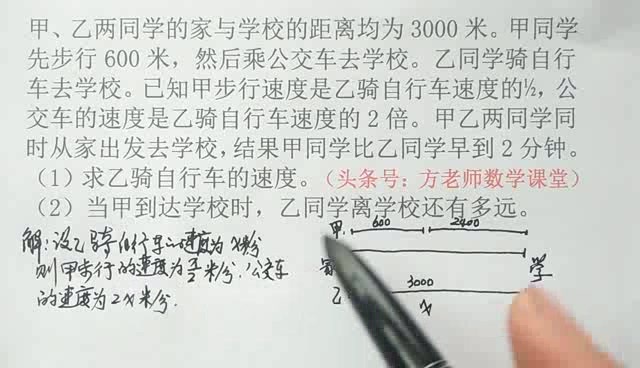 甲、乙两同学的家与学校的距离均为 3000 米。甲同学
先步行 600 米，然后乘公交车去学校。乙同学骑自行
车去学校。已知甲步行速度是乙骑自行车速度的½，公
交车的速度是乙骑自行车速度的 2 倍。甲乙两同学同
时从家出发去学校，结果甲同学比乙同学早到 2 分钟。
（1）求乙骑自行车的速度。（头条号：方老师数学课堂）
（2）当甲到达学校时，乙同学离学校还有多远。
解：设乙骑自行车的速度为x米/分
则甲步行的速度为x/2米/分，公交车
的速度为2x米/分.
甲 600 2400
学
乙 3000
x